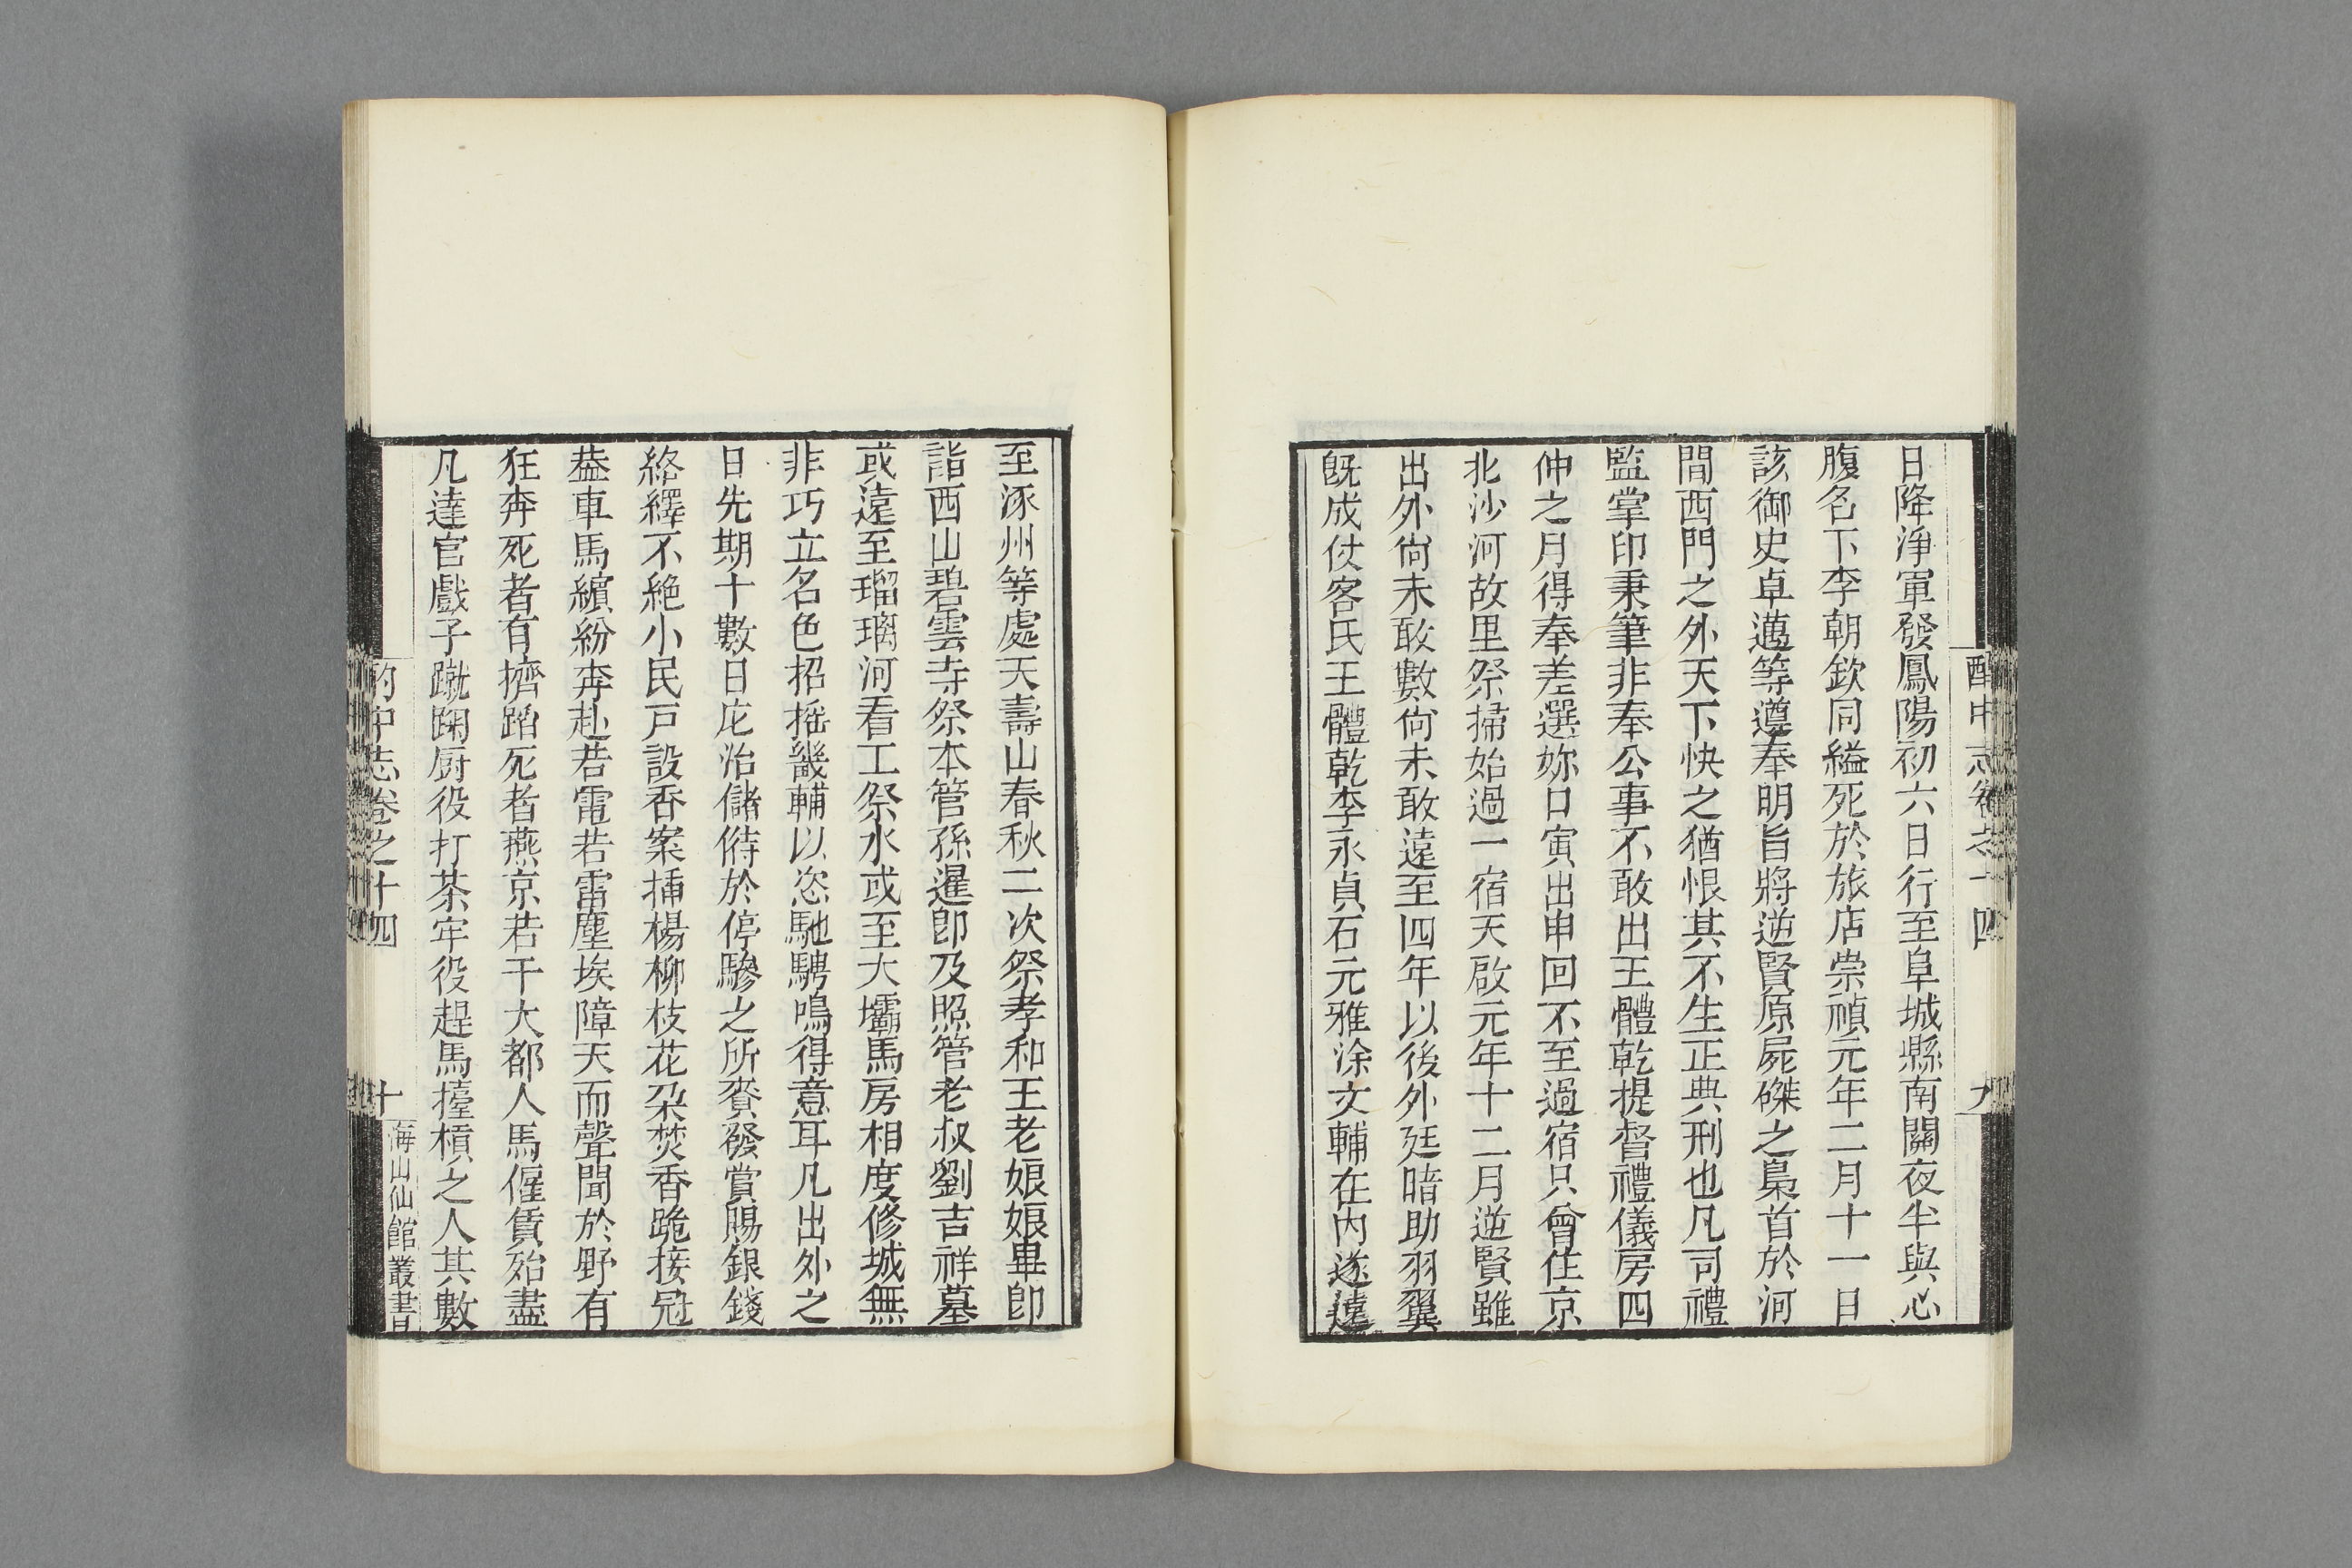 酌中志卷之十四
九
日降淨軍發鳳陽初六日行至阜城縣南關夜半與心
腹名下李朝欽同縊死於旅店崇禎元年二月十一日
該御史卓邁等遵奉明旨將逆賢原屍磔之梟首於河
間西門之外天下快之猶恨其不生正典刑也凡司禮
監掌印秉筆非奉公事不敢出王體乾提督禮儀房四
仲之月得奉差選妳口寅出申回不至過宿只曾住京
北沙河故里祭掃始過一宿天啟元年十二月逆賢雖
出外尙未敢數尙未敢遠至四年以後外廷暗助羽翼
旣成仗客氏王體乾李永貞石元雅涂文輔在內遂遠
至涿州等處天壽山春秋二次祭孝和王老娘娘畢卽
詣西山碧雲寺祭本管孫暹卽及照管老叔劉吉祥墓
或遠至瑠璃河看工祭水或至大壩馬房相度修城無
非巧立名色招搖畿輔以恣馳騁鳴得意耳凡出外之
日先期十數日庀治儲偫於停驂之所賚發賞賜銀錢
絡繹不絶小民戸設香案揷楊柳枝花朶焚香跪接冠
葢車馬繽紛奔赴若電若雷塵埃障天而聲聞於野有
狂奔死者有擠蹈死者燕京若干大都人馬僱賃殆盡
凡達官戲子蹴踘厨役打茶牢役趕馬擡槓之人其數
酌中志卷之十四
十
海山仙館叢書